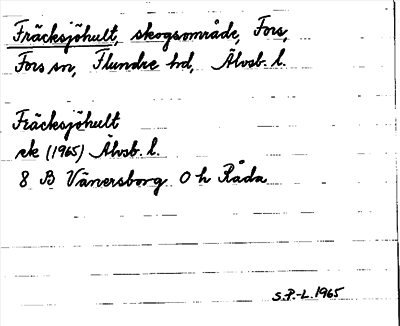 Fräcksjöhult, skogsområde, Fors,
Fors sn, Flundre hd, Älvsb. l.
Fräcksjöhult
ek (1965) Älvsb. l.
8 B Vänersborg 0 h Råda
S.P.-L. 1965